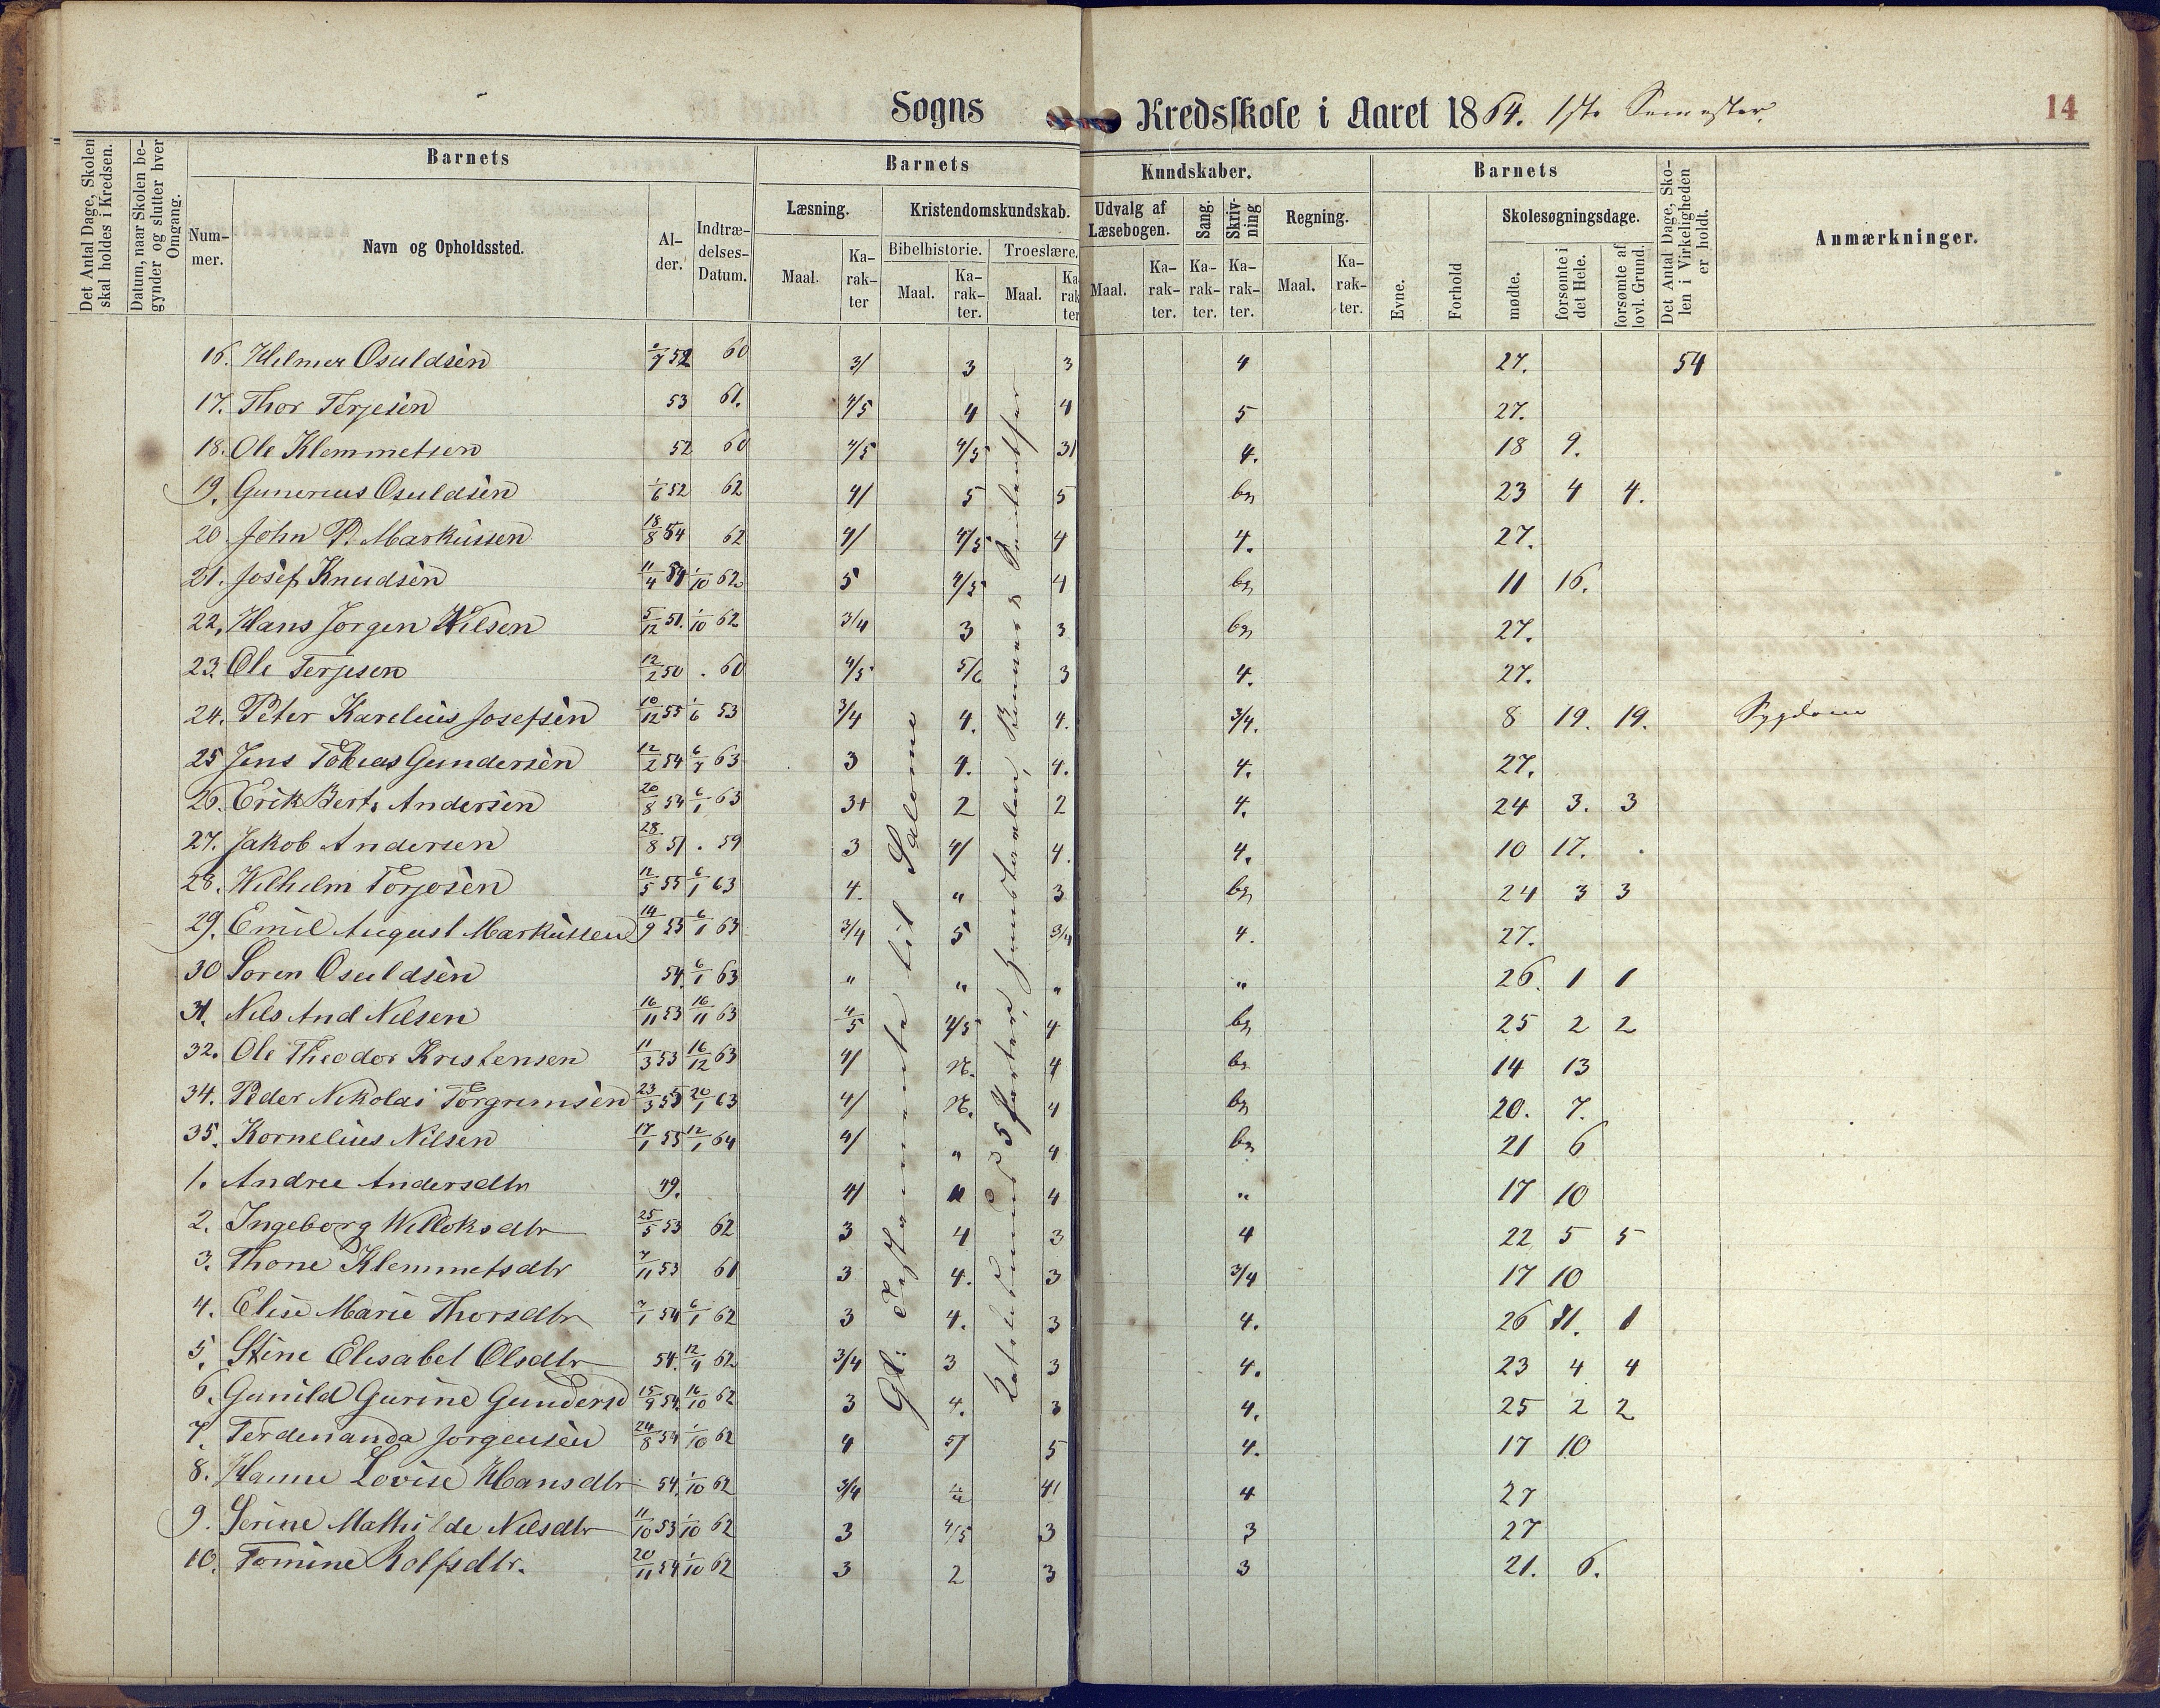 Sogns Kredsskole i Aaret 1864. 1ste Semester. 14
Det Antal Dage, Skolen skal holdes i Kredsen.
Datum, naar Skolen begynder og slutter hver Omgang.
Barnets
Nummer.
Navn og Opholdssted.
Alder.
Indtrædelses-Datum.
Barnets Kundskaber.
Læsning.
Maal.
Karakter
Kristendomskundskab.
Bibelhistorie.
Maal.
Karakter.
Troeslære.
Maal.
Karakter
Udvalg af Læsebogen.
Maal.
Karakter.
Sang.
Karakter.
Skrivning
Karakter.
Regning.
Maal.
Karakter.
Barnets
Evne.
Forhold
Skolesøgningsdage.
mødte.
forsømte i det Hele.
forsømte af lovl. Grund.
Det Antal Dage, Skolen i Virkeligheden er holdt.
Anmærkninger.
16. Hilmer Osuldsen 52 60 3/ 3 3 4 27. 54
17. Thor Terjesen 53 61. 4/5 4 4 5 27.
18. Ole Klemmetsen 52 60 4/5 4/5 3/ 4. 18 9.
19. Gunerius Osuldsen 1/6 52 62 4/ 5 5 bg 23 4 4.
20. John P. Markussen 18/8 54 62 4/ 4/5 4 4. 27.
21. Josef Knudsen 11/4 54 1/10 62 5 4/5 4 bg 11 16.
22. Hans Jørgen Nilsen 5/12 51. 1/10 62 3/4 3 3 bg 27.
23. Ole Terjesen 12/2 50 . 60 4/5 5/6 3 4. 27.
24. Peter Karelius Josefsen 10/12 55 1/6 53 3/4 4. 4. 3/4. 8 19. 19. Sygdom
25 Jens Tobias Gundersen 12/2 54 63 3 4. 4. 4. 27.
26. Erik Bert. Andersen 20/8 54 6/1 63 3+ 2 2 4. 24 3. 3
27. Jakob Andersen 28/8 51 . 59 3 4/ 4. 4. 10 17.
28. Wilhelm Torjosen 12/5 55 6/1 63 4. " 3 bg 24 3 3
29. Emil August Markussen 14/9 53 6/1 63 3/4 5 3/4 4. 27.
30 Søren Osuldsen 54. 6/1 63 " " " " 26. 1 1
31. Nils And Nilsen 16/11 53 16/11 63 4/5 4/5 4 bg 25 2 2
32. Ole Theodor Kristensen 11/3 53 16/12 63 4/ N. 4 bg 14 13
34. Peder Nikolai Torgrimsen 23/3 53 20/1 63 4/ N. 4 bg 20. 7.
35. Kornelius Nilsen 17/1 55 12/1 64 4/ " 4 bg 21 6
1. Andree Andersdtr 49. 4/ " 4 " 17 10
2. Ingeborg Willoksdtr 25/5 53 62 3 4 3 4 22 5 5
3. Thone Klemmetsdtr 7/11 53 61 3 4. 3 3/4 17 10
4. Elise Marie Thorsdtr 7/1 54 6/1 62 3 4. 3 4. 26 1. 1
5. Stine Elisabet Olsdtr 54. 12/4 62 3/4 3 3 4. 23 4 4
6. Gunild Gurine Gundersd 15/9 54. 16/10 62 3 4. 3 4. 25 2 2
7. Ferdenanda Jørgensen 24/8 54 1/10 62 4 5/ 5 4. 17 10
8. Hanne Lovise Hansdtr 54. 1/10 62 3/4 4/ 4 27
9. Serine Mathilde Nilsdtr 11/10 53 1/10 62 3 4/5 3 3 27
10. Tomine Rolfsdtr. 20/11 54 1/10 62 3 2 3 3 21. 6.
Gl: Testamente til Salomo
5 Parter,